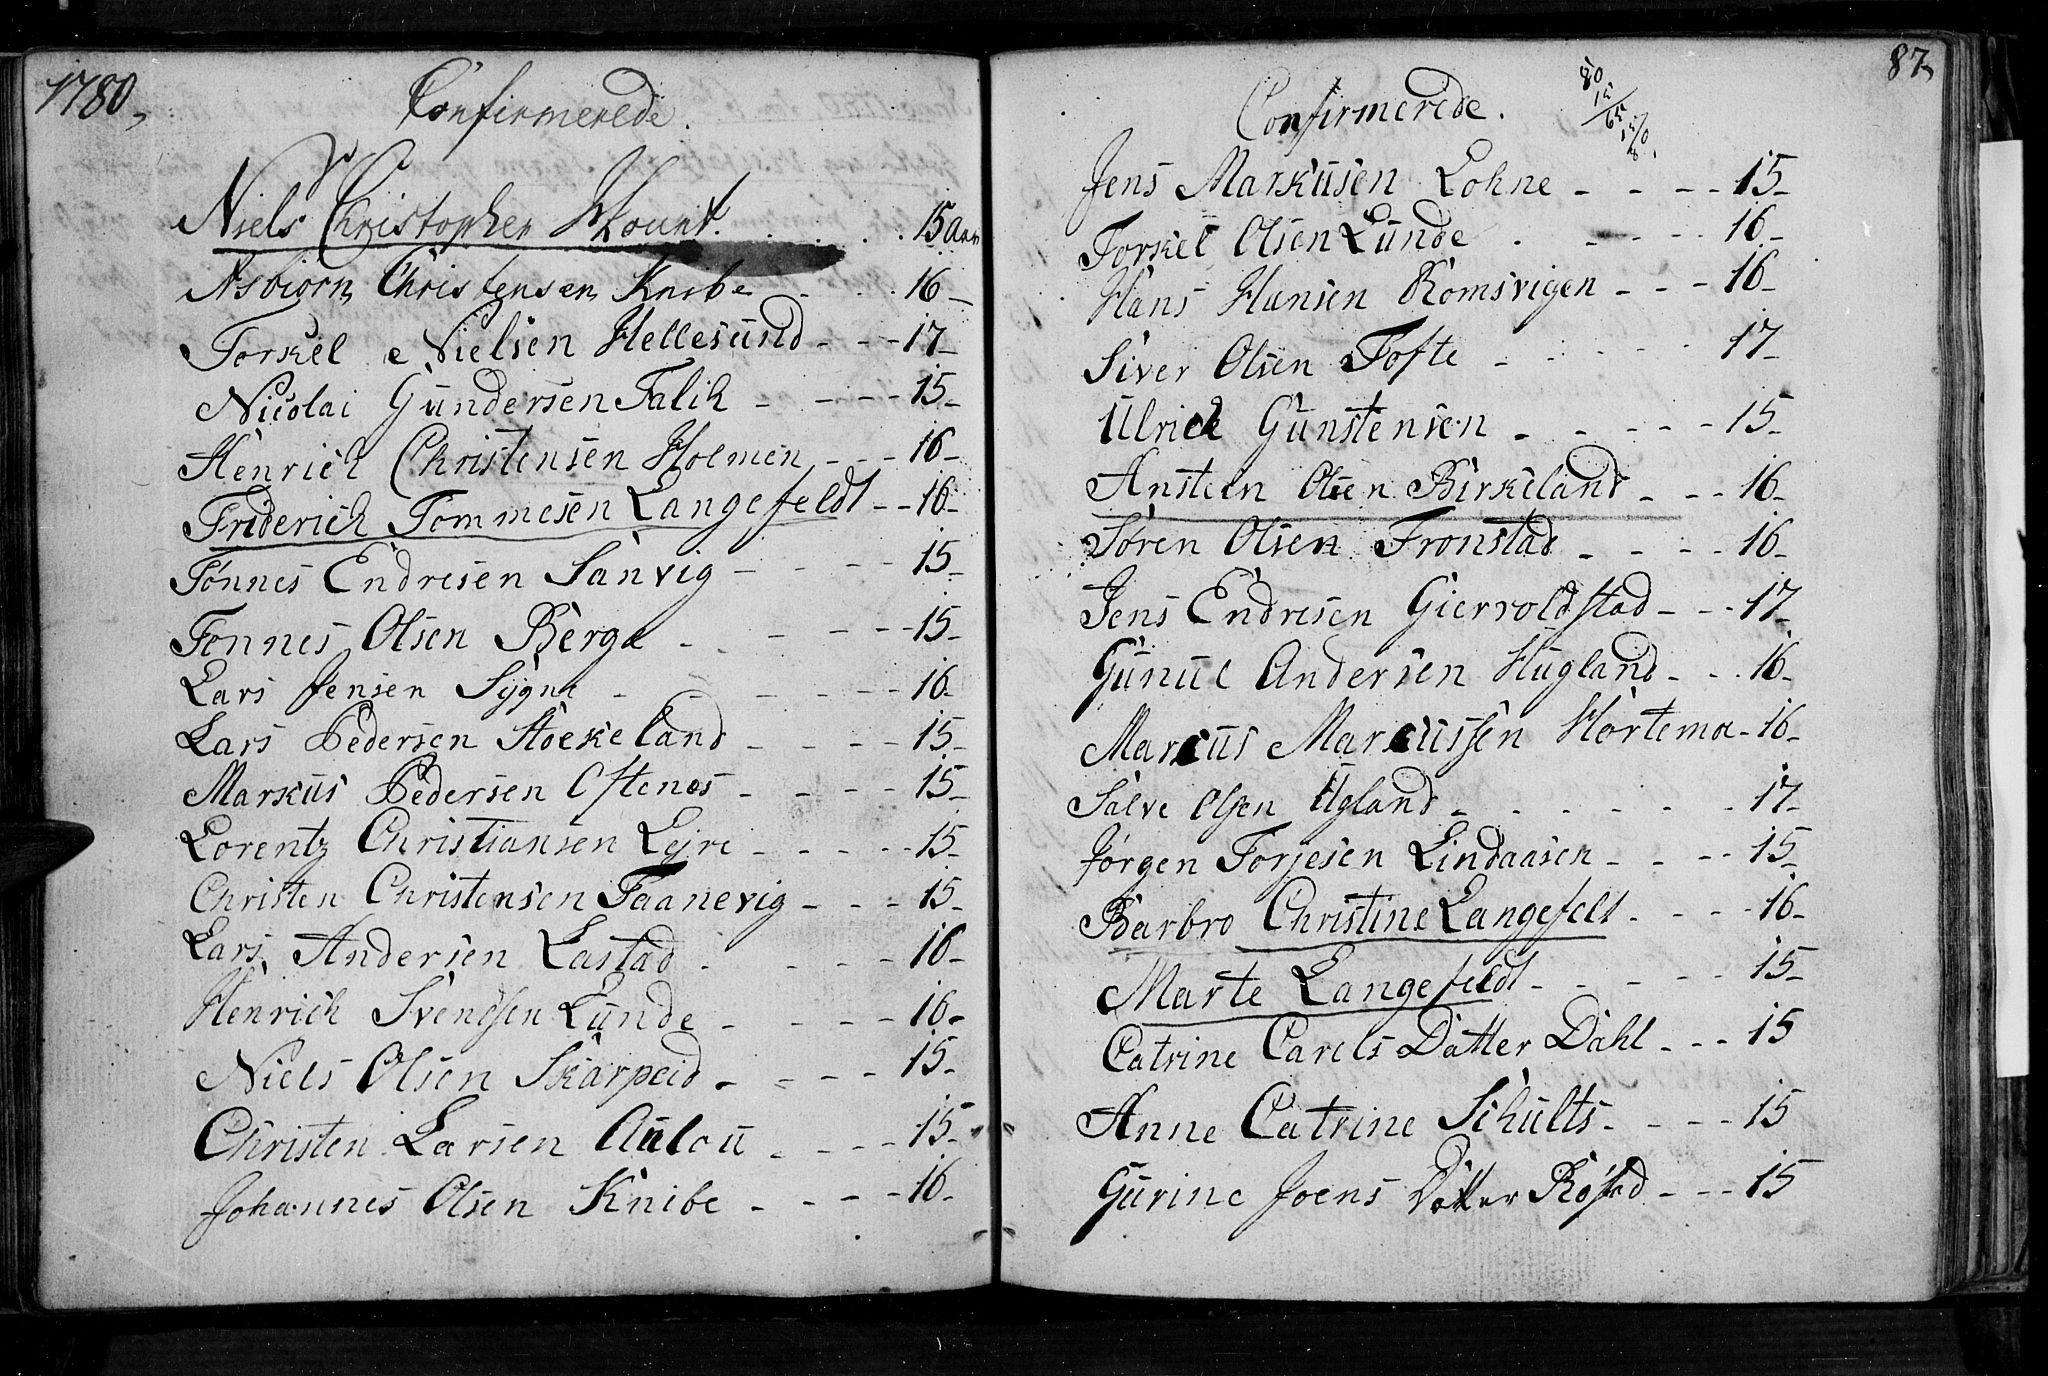 1780,
Confirmerede.
Niels Christopher Mount. . . . . 15 Aar
Asbiorn Christensen Knibe - - . 16 -
Torkel Nielsen Hellesund - - - 17 -
Nicolai Gundersen Falik - - - - 15 -
Henrich Christensen Holmen - - - 16 -
Friderich Tommesen Langefeldt - - 16 -
Tønnes Endresen Sanvig - - - - 15 -
Tønnes Olsen Berge - - - - - 15 -
Lars Jensen Sygne - - - - - - 16 -
Lars Pedersen Støekeland - - - - 15 -
Markus Pedersen Oftenes - - - - 15 -
Lorentz Christiansen Lejre - - - - - 15 -
Christen Christensen Faanevig - - - 15 -
Lars Andersen Lastad - - - - 16 -
Henrich Svendsen Lunde - - - - 16 -
Niels Olsen Skarpeid - - - - 15 -
Christen Larsen Aulou - - - - 15 -
Johannes Olsen Knibe - - - - 16 -
87,
Confirmerede.
80
15
65
Jens Markusen Lohne - - - - 15 -
Torkel Olsen Lunde . - - - - 16 -
Hans Hansen Romsvigen - - - 16 -
Siver Olsen Tofte - - - - - 17 -
Ulrick Gunstensen - - - - - 15 -
Ansteen Olsen Birkeland - - - 16 -
Søren Olsen Tronstad - - - - 16 -
Jens Endresen Giervoldstad - - - 17 -
Gunul Andersen Hugland - - . 16 -
Marcus Marcussen Hørtema - 16 -
Salve Olsen Ugland - - - - - - 17 -
Jørgen Torjesen Lindaasen - - - - 15 -
Barbro Christine Langefelt - - - - 16 -
Marte Langefeldt - - - - - 15 -
Catrine Carels Datter Dahl - - - 15
Anne Catrine Schults - - - - 15
Gurine Joens Datter Røstad - - - 15